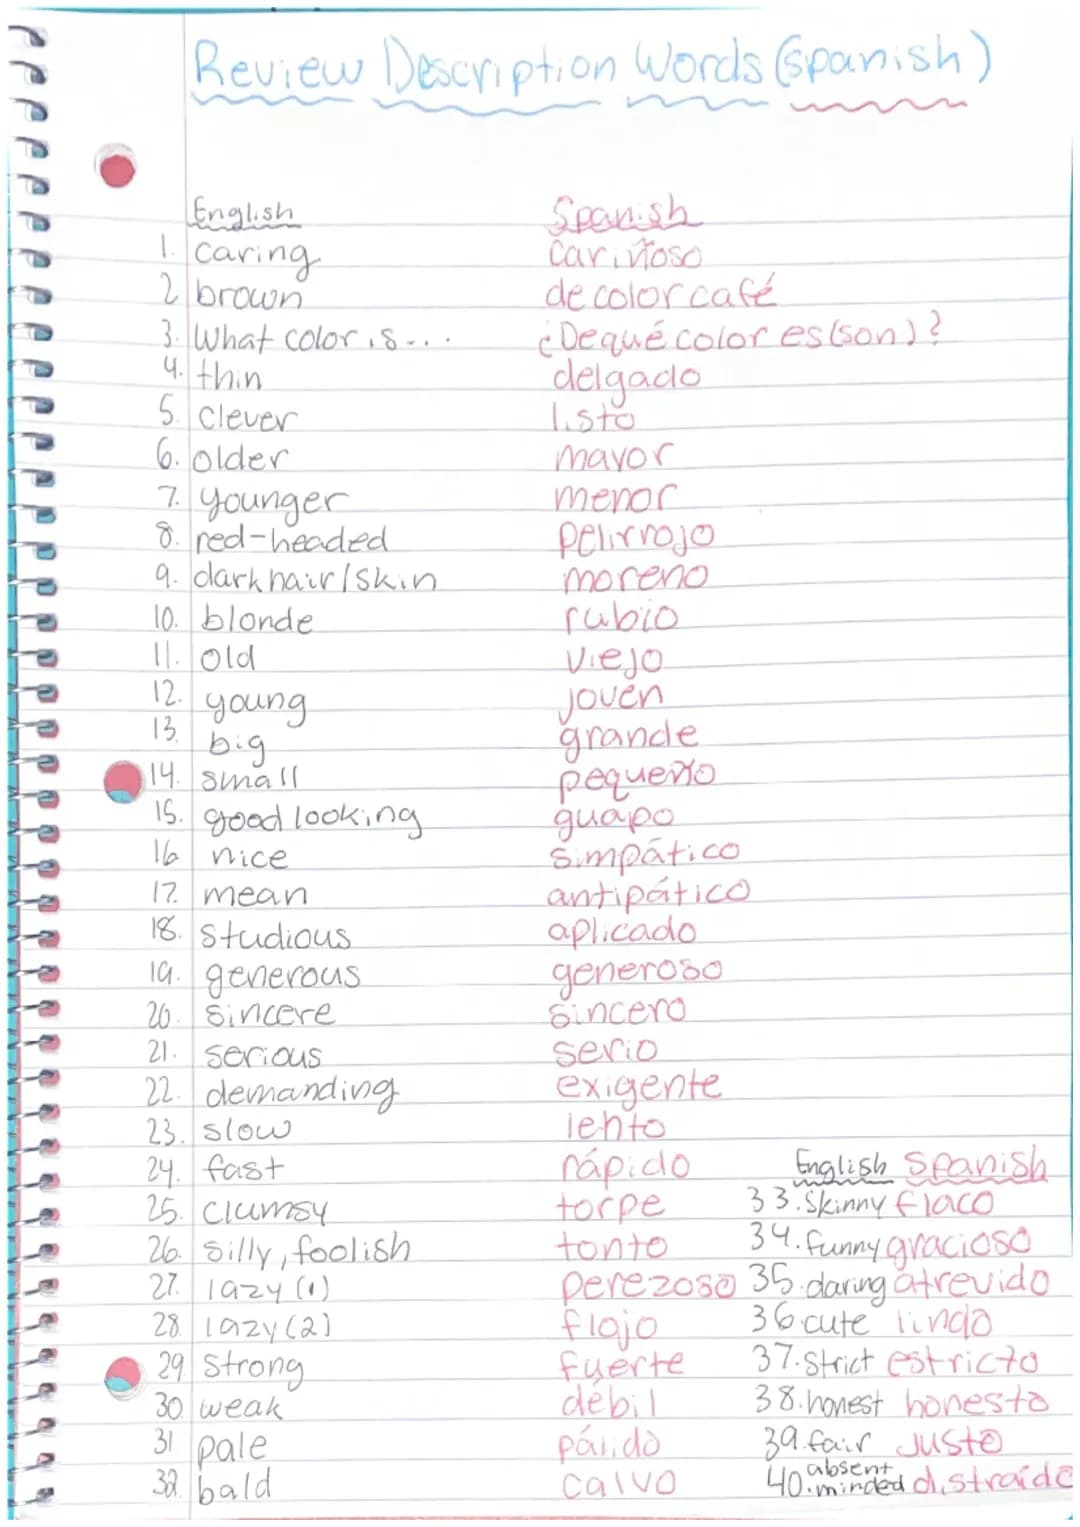 Review Description Words (Spanish)
English Spanish
1. caring cariñoso
2 brown de color café
3. What color is... ¿De qué color es (son)?
4. thin delgado
5. clever listo
6. older mayor
7. younger menor
8. red-headed pelirrojo
9. dark hair/skin moreno
10. blonde rubio
11. old viejo
12. young joven
13. big grande
14. small pequeño
15. good looking guapo
16 nice simpático
17. mean antipático
18. studious aplicado
19. generous generoso
20. sincere sincero
21. serious serio
22. demanding exigente
23. slow lento
24. fast rápido
25. clumsy torpe
26. silly, foolish tonto
27. lazy (1) perezoso
28. lazy (2) flojo
29. strong fuerte
30 weak débil
31 pale pálido
32. bald calvo
English Spanish
33. skinny flaco
34. funny gracioso
35. daring atrevido
36. cute lindo
37. strict estricto
38. honest honesto
39. fair justo
40. absent minded distraído